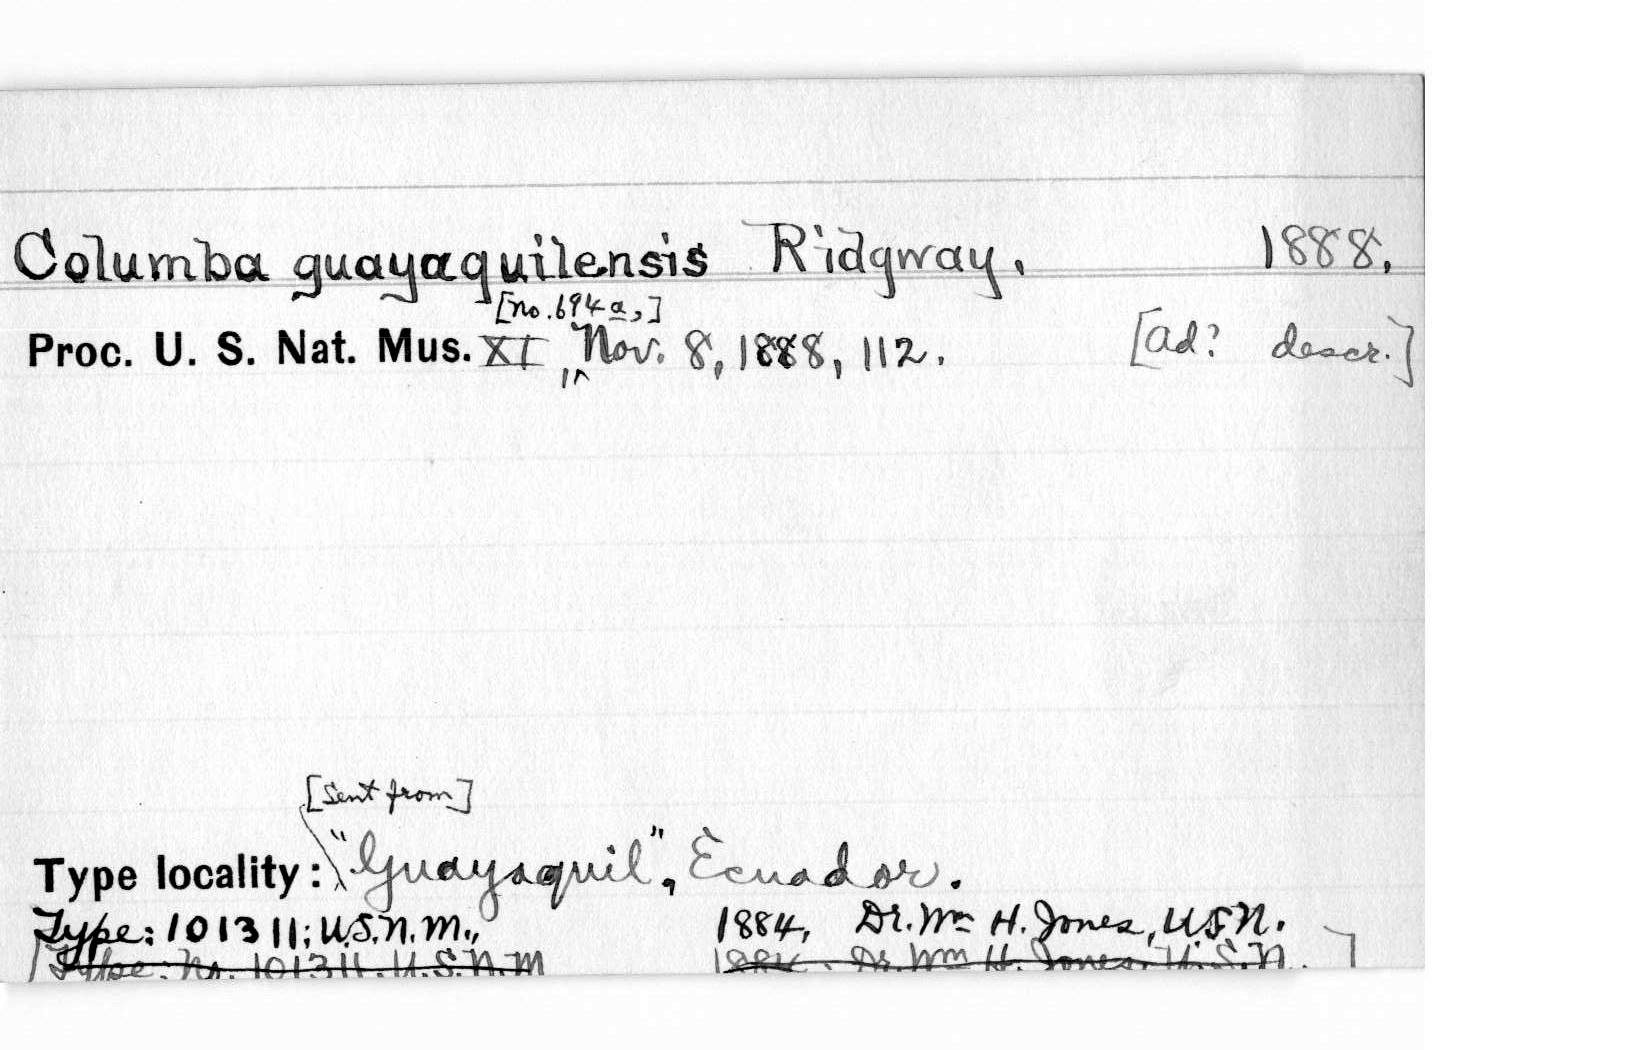 Columba guayaquilensis Ridgway, 1888,
[no. 694a,]
Proc. U. S. Nat. Mus. XI, Nov. 8, 1888, 112. [ad? descr.]
[Sent from]
Type locality: "Guayaquil", Ecuador.
Type: 101311; U.S.N.M., 1884, Dr. Wm H. Jones, U.S.N.
[Type: No. 101311, U.S.N.M 1884, Dr. Wm H. Jones, U.S.N. ]